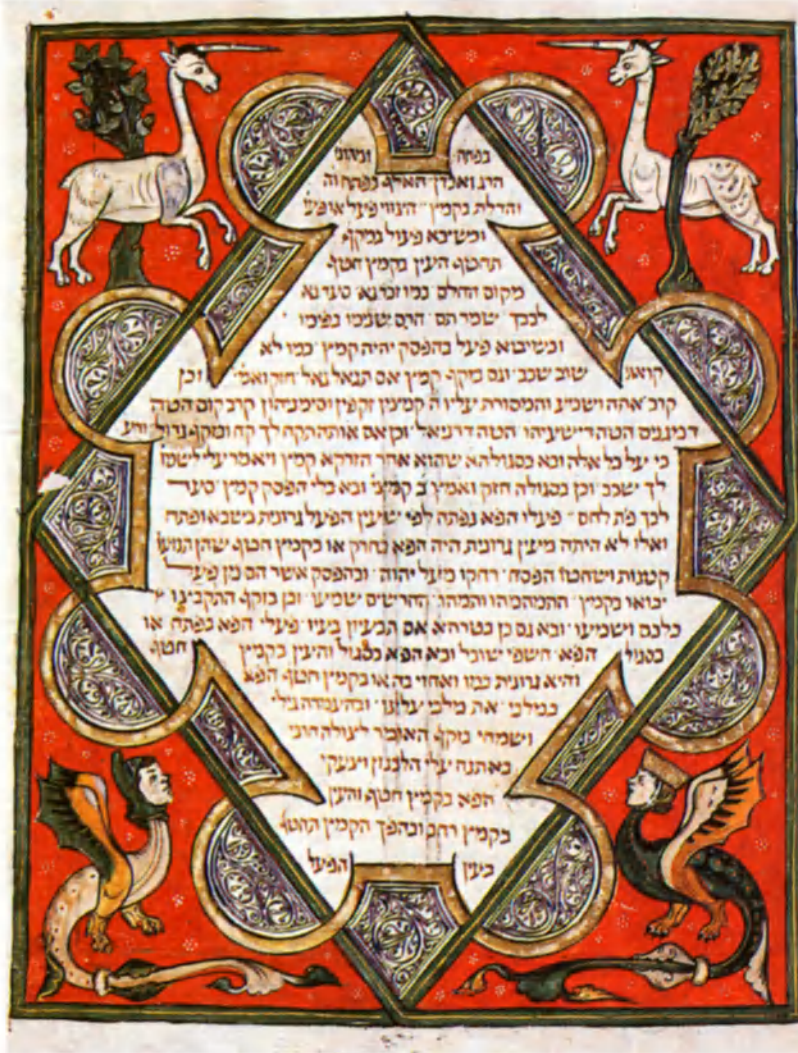 בפתח
הרג ואבדן האלף בפתח וה
והדלת בקמץ הצווי פיעל או פעי
וכשיבא פיעול במקף
תחטף העין בקמץ חטף
מקום החלם כמו זכר נא סעד נא
לבבך שמר תם הרס שנימו בפימו
וכשיבוא פיעל בהפסק יהיה קמץ כמו לא
קורא שוב שכב וגם מקף קמץ אם תגאל גאל חזק ואמץ וכן
קרב אתה ושמע והמסורת עליו ה קמצין זקפין וסימניהון קרב קום הטה
הטה דישעיהו הטה דדניאל וכן אם אותה תקח לך קח ומקף גדול
כי יעל כל אלה ובא בסגולתא שהוא אחר הזרקא קמץ ויאמר עלי לשמו
לך שכב וכן בסגולה חזק ואמץ ב קמצי ובא בלי הפסק קמץ סעד
לבך פת לחם פיעלי הפא נפתח לפי שעין הפיעל גרונית בשבא ופתח
ואלו לא היתה מעין גרונית היה הפא בחרק או בקמץ חטף שהן תנועו
קטנות ושחטו הפסח רחקו מעל יהוה ובהפסק אשר הם מן פיעל
יבואו בקמץ התמהמהו ותמהו החרשים שמעו וכן בזקף התקבצו
כלכם ושמעו ובא גם כן בטרחא אם תבעיון בעיו פיעלי הפא בפתח או
בסגול הפא חשפי שובל ובא הפא בסגול והעין בקמץ חטף
והיא גרונית כמו ואחזי בה או בקמץ חטף הפא
כמלכי את מלכי עלינו ובהעמדה גילי
ושמחי בזקף האומר לצולה חרבי
באתנח עלי הלבנון וצעקי
הפא בקמץ חטף והעין
בקמץ רחב ובהפך הקמץ תחטף
בעין הפעל